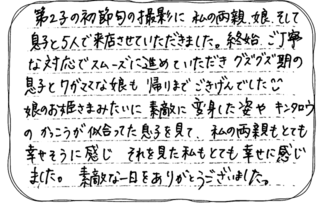 第2子の初節句の撮影に 私の両親、娘、そして
息子と5人で来店させていただきました。終始、ご丁寧
な対応でスムーズに進めていただき グズグズ期の
息子とワガママな娘も 帰りまでごきげんでした
娘のお姫さまみたいに 素敵に 変身した姿や キンタロウ
の かっこうが似合ってた息子を見て、私の両親もとても
幸せそうに感じ それを見た私もとても幸せに感じ
ました。素敵な一日をありがとうございました。